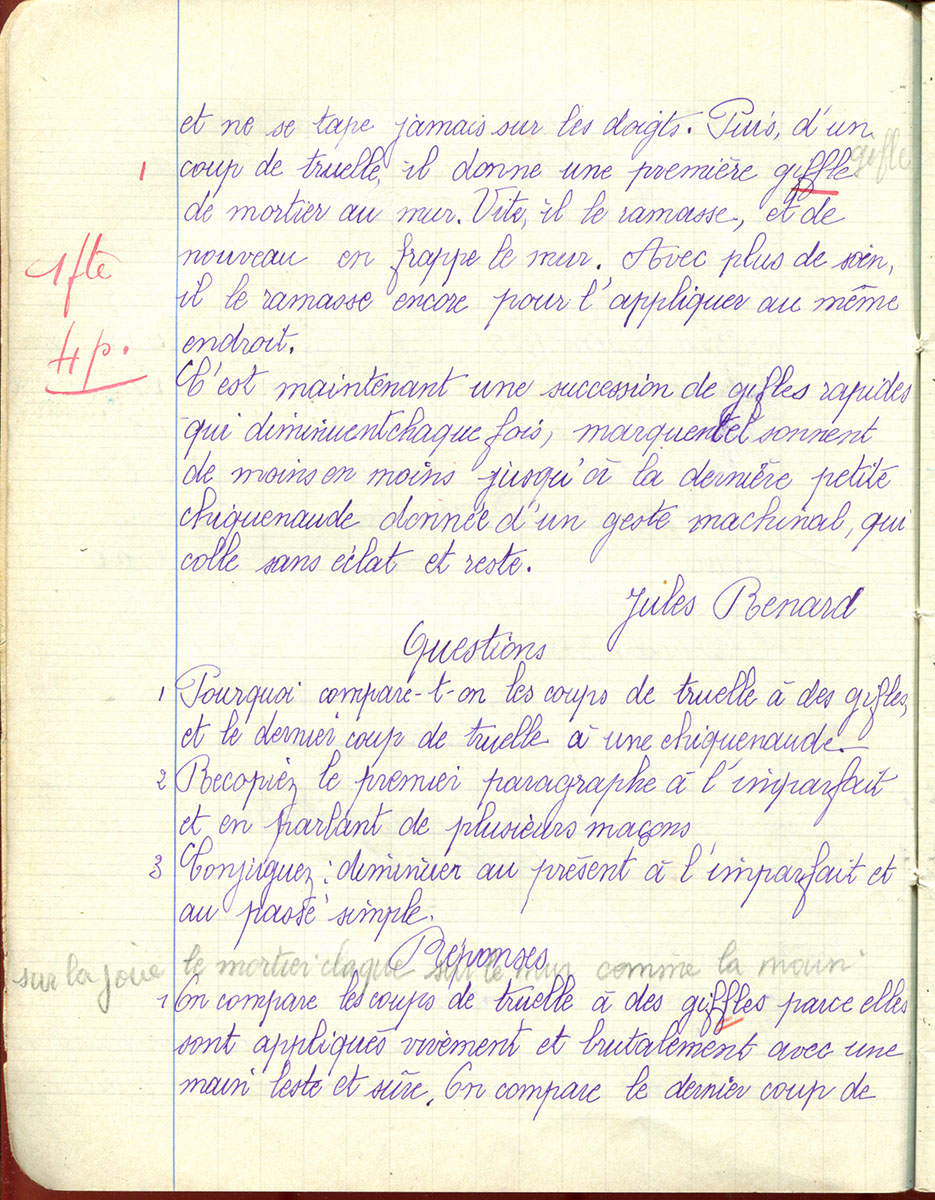 et ne se tape jamais sur les doigts. Puis, d'un
gifle
1 coup de truelle, il donne une première giffle
de mortier au mur. Vite, il le ramasse, et de
1 fte
nouveau en frappe le mur. Avec plus de soin,
il le ramasse encore pour l'appliquer au même
4 p.
endroit.
C'est maintenant une succession de gifles rapides
qui diminuent chaque fois, marquent et sonnent
de moins en moins jusqu'à la dernière petite
chiquenaude donnée d'un geste machinal, qui
colle sans éclat et reste.
Jules Renard
Questions
1 Pourquoi compare-t-on les coups de truelle à des gifles,
et le dernier coup de truelle à une chiquenaude.
2 Recopiez le premier paragraphe à l'imparfait
et en parlant de plusieurs maçons
3 Conjuguez : diminuer au présent à l'imparfait et
au passé simple.
Réponses
sur la joue le mortier claque sur le mur comme la main
1 On compare les coups de truelle à des giffles parce elles
sont appliqués vivement et brutalement avec une
main leste et sûre. On compare le dernier coup de